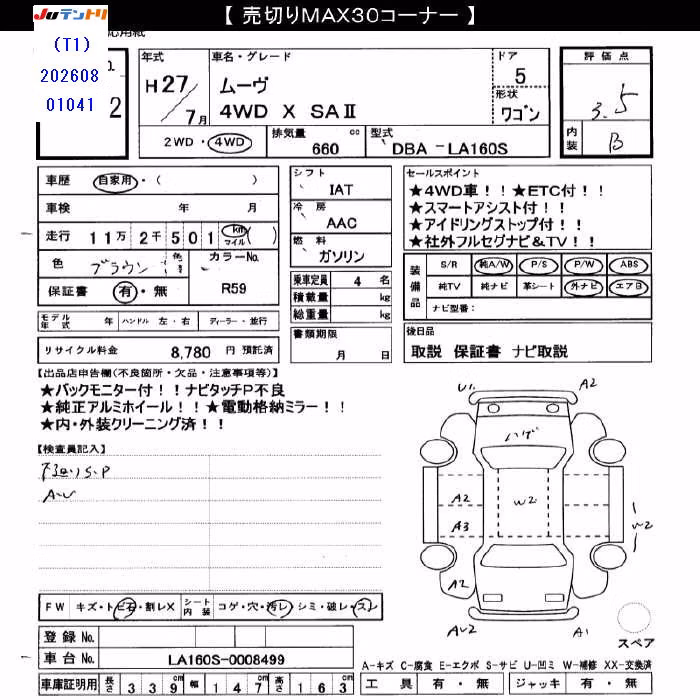 【 売切りMAX30コーナー 】
JUテントリ
(T1)
202608
01041
2
年式
H27/7月
車名・グレード
ムーヴ
4WD X SAⅡ
ドア
5
形状
ワゴン
評価点
3.5
内装
B
2WD・4WD
排気量
660 cc
型式
DBA -LA160S
車歴 自家用・( )
車検 年 月
走行 11万2千501 km マイル ( )
色 ブラウン 色
カラーNo.
R59
保証書 有・無
シフト
IAT
冷房
AAC
燃料
ガソリン
乗車定員 4 名
積載量 kg
総重量 kg
セールスポイント
★4WD車！！★ETC付！！
★スマートアシスト付！！
★アイドリングストップ付！！
★社外フルセグナビ&TV！！
装備品
S/R 純A/W P/S P/W ABS
純TV 純ナビ 革シート 外ナビ エアB
ナビ型番：
モデル年式 年 ハンドル 左・右 ディーラー・並行
書類期限
月 日
後日品
取説 保証書 ナビ取説
リサイクル料金 8,780 円 預託済
【出品店申告欄(不良箇所・欠品・注意事項等)】
★バックモニター付！！ナビタッチP不良
★純正アルミホイール！！★電動格納ミラー！！
★内・外装クリーニング済！！
【検査員記入】
S・P
A-U
U1
A2
ハゲ
A2
W2
A3
W2
A2
AU2
A1
スペア
FW キズ・トビ石・割レX
シート内装 コゲ・穴・汚レ シミ・破レ・スレ
登録No.
車台No. LA160S-0008499
A-キズ C-腐食 E-エクボ S-サビ U-凹ミ W-補修 XX-交換済
車庫証明用 長さ 339 幅 147 高さ 163
工具 有・無 ジャッキ 有・無